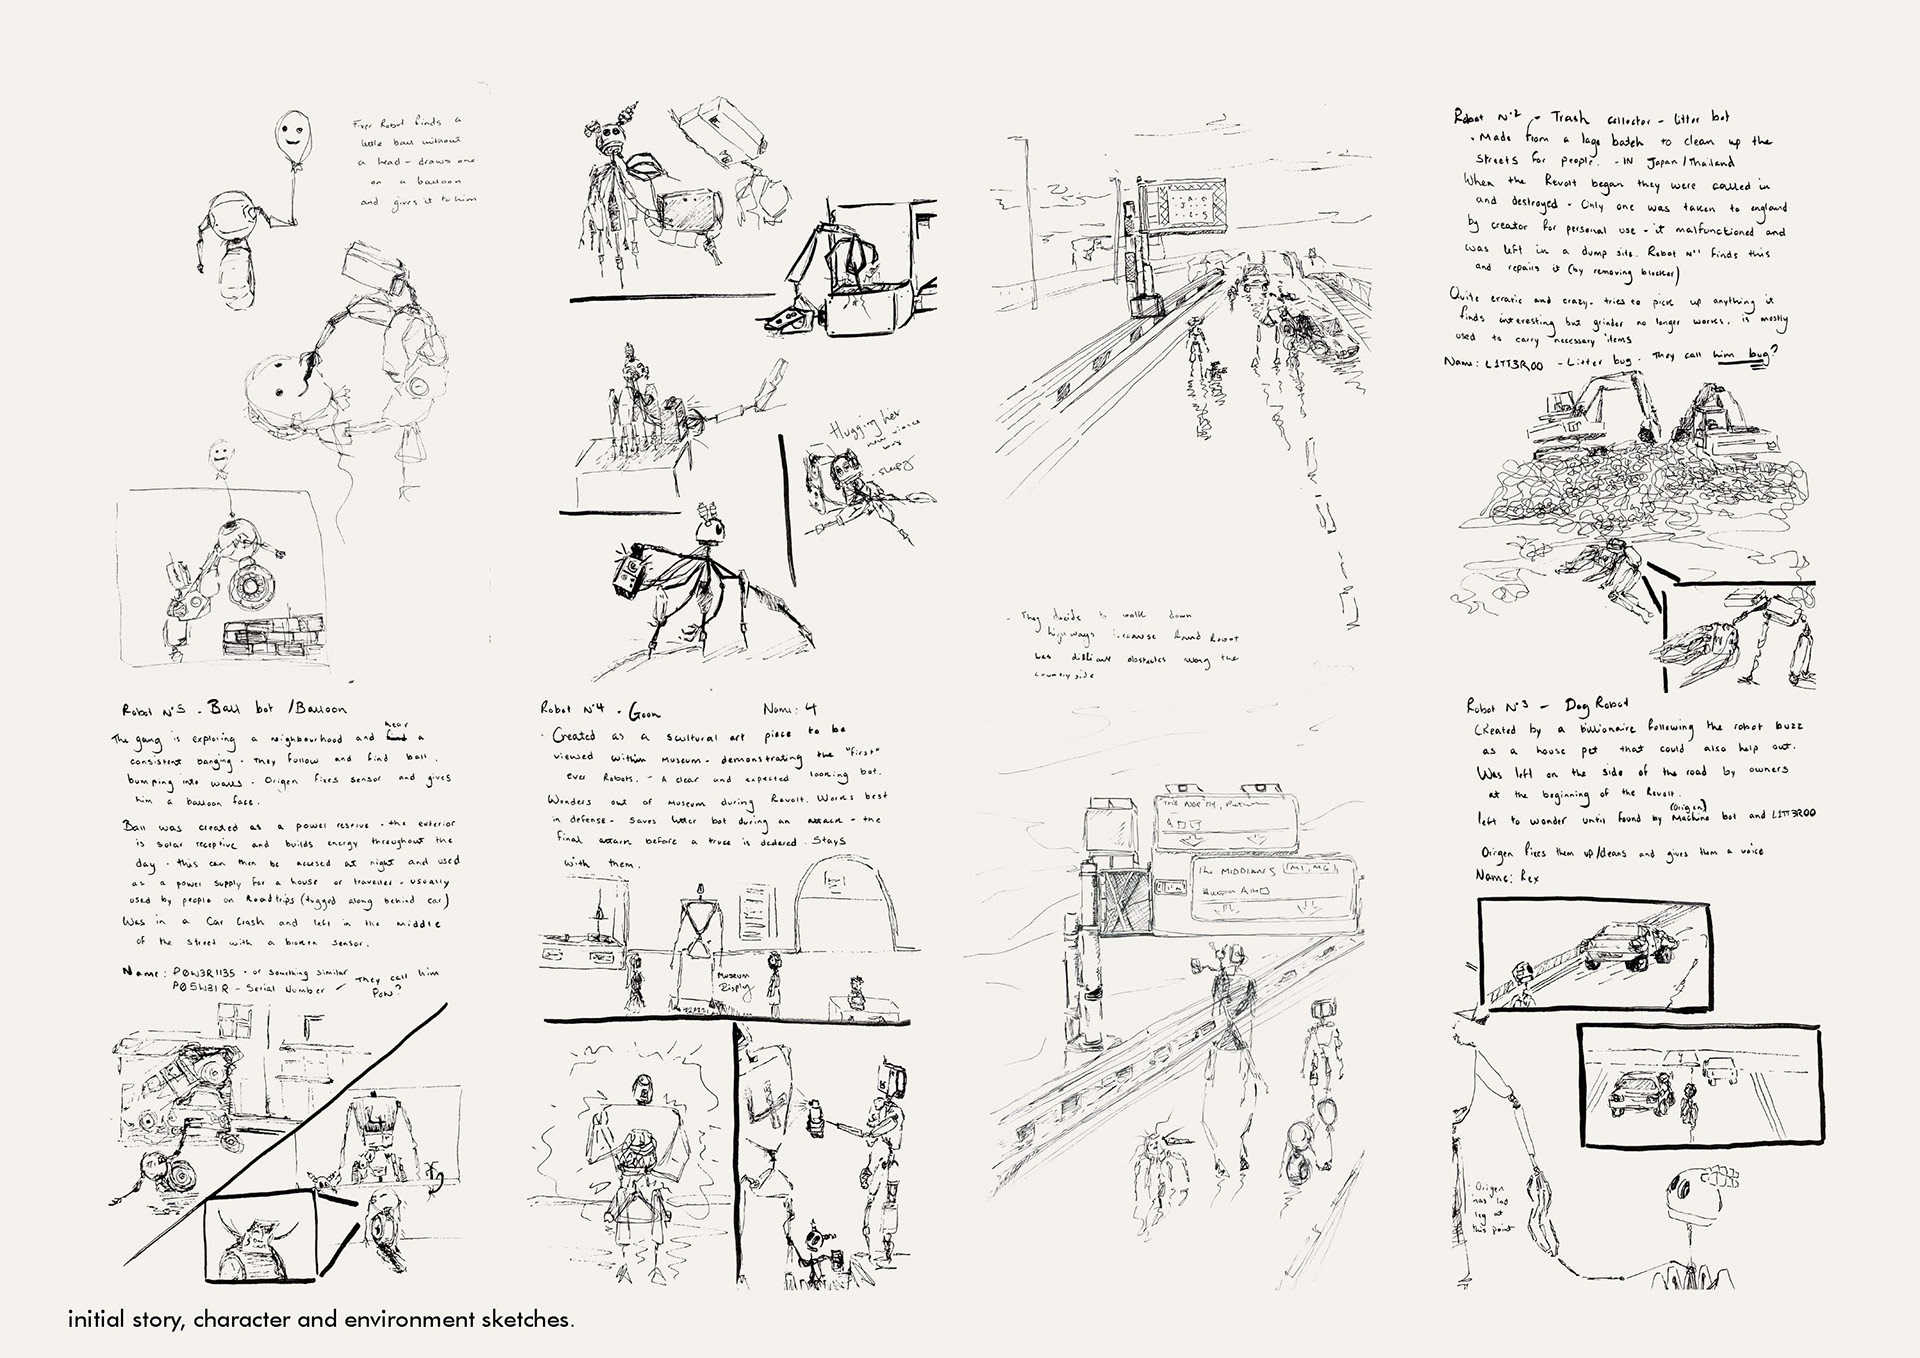 Fixer Robot finds a
little ball without
a head - draws one
on a balloon
and gives it to him
Hugging her
new voice
box
- sleepy
They decide to walk down
highways because Round Robot
has difficult obstacles along the
countryside
Robot Nº2 - Trash collector - litter bot
· Made from a lage batch to clean up the
streets for people. - IN Japan/Thailand
When the Revolt began they were called in
and destroyed - Only one was taken to england
by creator for personal use - it malfunctioned and
was left in a dump site. Robot Nº1 finds this
and repairs it (by removing blocker)
Quite erratic and crazy - tries to pick up anything it
finds interesting but grinder no longer works. is mostly
used to carry necessary items
Name: L1TT3R00 - Litter bug. They call him bug?
Robot Nº5 - Ball bot / Balloon
The gang is exploring a neighbourhood and hear a
consistent banging. They follow and find ball.
bumping into walls. Origen fixes sensor and gives
him a balloon face.
Ball was created as a power reserve - the exterior
is solar receptive and builds energy throughout the
day - this can then be accused at night and used
as a power supply for a house or traveller - usually
used by people on Roadtrips (tugged along behind car)
Was in a Car Crash and left in the middle
of the street with a broken sensor.
Name: P0W3R1135 - or something similar
P05W31R - Serial Number
They call him
Pow?
Robot Nº4 - Goon Name: 4
· Created as a scultural art piece to be
viewed within Museum - demonstrating the "first"
ever Robots. - A clear and expected looking bot.
Wonders out of museum during Revolt. Works best
in defense - saves litter bot during an attack - the
final attack before a truce is declared. Stays
with them.
Museum
Display
THE NORTH,
The MIDDLANDS (M1, M6)
Robot Nº3 - Dog Robot
Created by a billionaire following the robot buzz
as a house pet that could also help out.
Was left on the side of the road by owners
at the beginning of the Revolt.
(Origen)
left to wonder until found by Machine bot and L1TT3R00
Origen fixes them up/cleans and gives them a voice
Name: Rex
· Origen
has lost
leg at
this point
initial story, character and environment sketches.